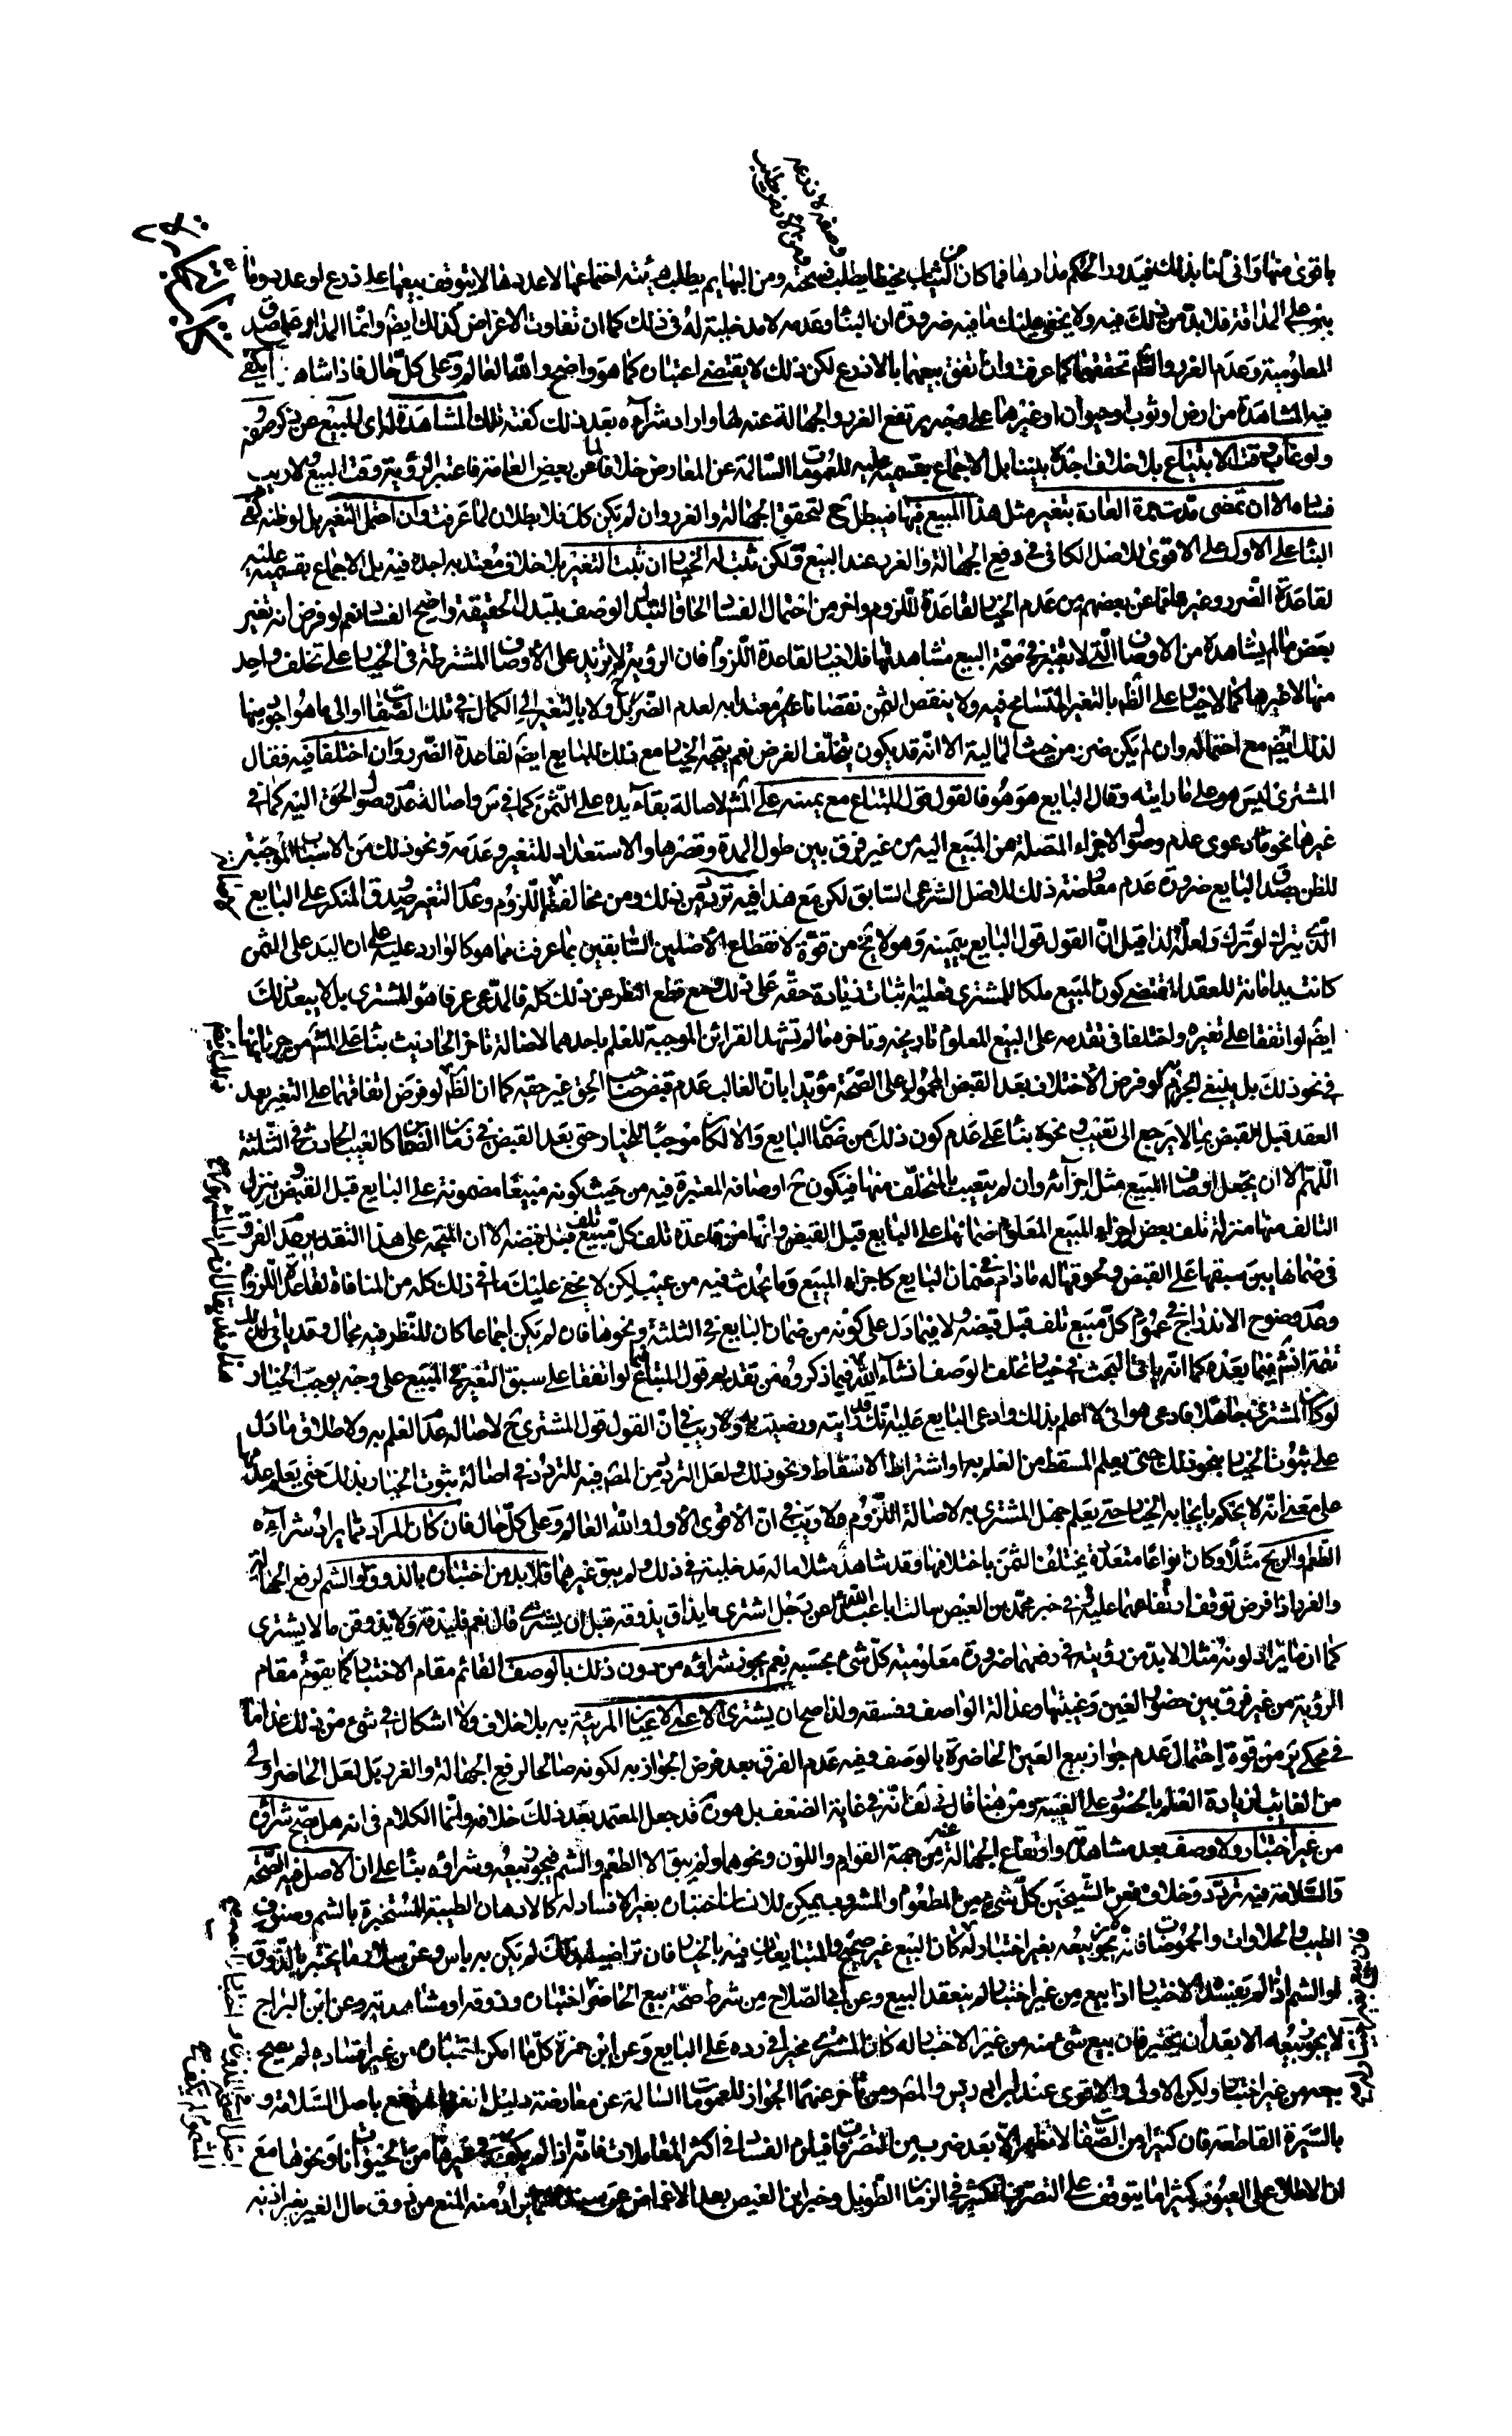 باقوى منها وانى لنا بذلك فيدور الحكم مدارها فما كان من الثياب مخيطا يطلب فسحته ومن البهايم يطلب هيئته اجتماعها لا عددها لا يتوقف بيعها على ذرع او عدد وما
بنى على المداقة فلا بد من ذلك فيه ولا يخفى عليك ما فيه ضرورة ان البناء وعدمه لا مدخلية له فى ذلك كما ان تفاوت الاغراض كذلك ايضم وانما المدار على صدق
المعلومية وعدم الغرر والظم تحققهما كما عرفت وان اتفق بيعهما بالاذرع لكن ذلك لا يقتضى اعتبار كما هو واضح والله العالم وعلى كل حال فاذا شاهد ما يكفى
فيه المشاهدة من ارض او ثوب او حيوان او غيرها على وجه يرتفع الغرر والجهالة عنه لها واراد شراءه بعد ذلك كفته تلك المشاهدة لذى المبيع عن ذكر وصفه
ولو غاب وقت الابتياع بلا خلاف اجده بيننا بل الاجماع بقسميه عليه للعمومات السالمة عن المعارض خلافا لما عن بعض العامة فاعتبر الرؤية وقت البيع ولا ريب
فساده الا ان تمضى مدت جرت العادة بتغير مثل هذا المبيع فيها فيبطل ح لتحقق الجهالة والغرر وان لم يكن كك فلا بطلان لما عرفت وان احتمل التغير بل لو ظنه كفى
البناء على الاول على الاقوى للاصل الكافى فى دفع الجهالة والغرر عند البيع ولكن ثبت له الخيار ان ثبت التغير بلا خلاف معتد به اجده فيه بل الاجماع بقسميه عليه
لقاعدة الضرر وغيرها فما عن بعضهم من عدم الخيار لقاعدة اللزوم واخر من احتمال الفساد الحاقا لتبدل الوصف بتبدل الحقيقة واضح الفساد نعم لو فرض انه تغير
بعض ما لم يشاهده من الاوصاف التى لا تعتبر فى صحة البيع مشاهدتها فلا خيار لقاعدة اللزوم فان الرؤية لا تزيد على الاوصاف المشترطة فى الخيار على تخلف واحد
منها لا غيرها كما لا خيار على الظم بالتغير المتسامح فيه ولا ينقص الثمن نقصانا غير معتد به لعدم الضرر بكل ولا بالتغير الى الكمال فى تلك الصفات او الى ما هو اجود منها
لذلك ايضم مع احتماله وان لم يكن ضرر من حيث المالية الا انه قد يكون بتخلف الغرض نعم يتجه الخيار مع ذلك للبايع ايضم لقاعدة الضرر وان اختلفا فيه فقال
المشترى ليس هو على ما رايته وقال البايع هو هو فالقول قول المبتاع مع يمينه على المشم لاصالة بقاء يده على الثمن كما فى س واصالة عدم وصول الحق اليه كما فى
غيرها نحو ما دعوى عدم وصول الاجزاء المتصلة من المبيع اليه من غير فرق بين طول المدة وقصرها والاستعداد للتغير وعدمه ونحو ذلك من الاسباب الموجبة
للظن بصدق البايع ضرورة عدم معارضة ذلك للاصل الشرعى السابق لكن مع هذا فيه تردد من ذلك ومن مخالفته اللزوم وعدم التغير وصدق المنكر على البايع
الذى يترك لو ترك ولعله لذا قيل ان القول قول البايع بيمينه وهو لا يخ من قوة لانقطاع الاصلين السابقين بما عرفت مما هو كالوارد عليه على ان اليد على الثمن
كانت يد امانة للعقد المقتضى كون المبيع ملكا للمشترى فعليه اثبات زيادة حقه على ذلك ومع قطع النظر عن ذلك كله فالمدعى عرفا هو المشترى بل لا يبعد ذلك
ايضم لو اتفقا على تغيره واختلفا فى تقدمه على البيع المعلوم تاريخه وتاخره ما لم تشهد القرائن الموجبة للعلم باحدهما لاصالة تاخر الحادث بناء على المشم من جريانها
فى نحو ذلك بل ينبغى الجزم به لو فرض الاختلاف بعد القبض المحمول على الصحة مؤيدا بان الغالب عدم قبض صاحب الحق غير حقه كما ان الظم لو فرض اتفاقهما على التغير بعد
العقد قبل القبض بما لا يرجع الى تعيب ونحوه بناء على عدم كون ذلك من ضمان البايع والا لكان موجبا للخيار حتى بعد القبض فى زمان الضمان كالعيب الحادث فى الثلثة
اللهم الا ان يجعل اوصاف المبيع مثل اجزائه وان لم يتعيب بالمتخلف منها فيكون ح اوصافه المعتبرة فيه من حيث كونه مبيعا مضمونة على البايع قبل القبض وينزل
التالف منها منزلة تلف بعض اجزاء المبيع المعلوم ضمانها على البايع قبل القبض وانها من قاعدة تلف كل مبيع تلف قبل قبضه الا ان المتجه على هذا التقدير عدم الفرق
فى ضمانها بين سبقها على القبض ولحوقها له ما دام فى ضمان البايع كاجزاء المبيع وما يحدث فيه من عيب لكن لا يخفى عليك ما فى ذلك كله من المنافاة لقاعدة اللزوم
وعدم وضوح الاندراج فى عموم كل مبيع تلف قبل قبضه ولا فيما دل على كونه من ضمان البايع فى الثلثة ونحوها فان لم يكن اجماعا كان للنظر فيه مجال وقد ياتى لذلك
تتمة انشم فيما بعده كما انه ياتى البحث فى خيار تخلف الوصف انشاء الله فيما ذكروه من تقديم قول المبتاع لو اتفقا على سبق التغير فى المبيع على وجه يوجب الخيار
لو كان المشترى جاهلا فادعى هو انى لا اعلم بذلك وادعى البايع عليه انك قد رايته ورضيت به ولا ريب فى ان القول قول المشترى ح لاصالة عدم العلم به ولاطلاق ما دل
على ثبوت الخيار بنحو ذلك حتى يعلم المسقط من العلم به او اشتراط الاسقاط ونحو ذلك ولعل التردد من المصم فيه للتردد فى اصالة ثبوت الخيار بذلك حتى يعلم عدمها
على معنى انه لا يحكم بايجابه الخيار حتى يعلم جهل المشترى به لاصالة اللزوم ولا ريب فى ان الاقوى الاول والله العالم وعلى كل حال فان كان المراد مما يراد شراءه
الطعم والريح مثلا وكان انواعا متعددة يختلف الثمن باختلافها وقد شاهد مثلا ما له مدخلية فى ذلك ولم يبق غيرهما فلا بد من اختباره بالذوق او الشم لرفع الجهالة
والغرر اذا فرض توقف ارتفاعهما عليه فى خبر محمد بن العيص سالت ابا عبد الله عن رجل اشترى ما يذاق يذوقه قبل ان يشترى قال نعم فليذقه ولا يذوقن ما لا يشترى
كما ان ما يراد لونه مثلا لا بد من رؤيته فى رفعهما ضرورة معلومية كل شىء بحسبه نعم يجوز شراؤه من دون ذلك بالوصف القائم مقام الاختبار كما يقوم مقام
الرؤية من غير فرق بين حضور العين وغيبتها وعدالة الواصف وفسقه ولذا صح ان يشترى الاعمى الاعيان المرئية به بلا خلاف ولا اشكال فى شىء من ذلك عدا ما
فى محكى ير من قوة احتمال عدم جواز بيع العين الحاضرة بالوصف وفيه عدم الفرق بعد فرض الجواز به لكونه صالحا لرفع الجهالة والغرر بل لعل الحاضر اولى
من الغايب لزيادة العلم بالحضور على الغيبة ومن هنا قال فى لف انه فى غاية الضعف بل هو قد جعل المعتمد بعد ذلك خلافه وانما الكلام فى انه هل يصح شراؤه
من غير اختبار ولا وصف بعد مشاهدته وارتفاع الجهالة عنه من جهة القوام واللون ونحوهما ولم يبق الا الطعم والشم فيجوز بيعه وشراؤه بناء على ان الاصل فيه الصحة
والسلامة فيه تردد وخلاف فعن الشيخين كل شىء من المطعوم والمشروب يمكن للانسان اختباره بغير افساد له كالادهان الطيبة المستخبرة بالشم وصنوف
الطيب والحلاوات والحموضات فانه لا يجوز بيعه بغير اختبار له كان البيع غير صحيح والمتبايعان فيه بالخيار فان تراضيا بذلك لم يكن به باس وعن سلار ما يختبر بالذوق
او الشم اذا لم يفسده الاختبار اذا بيع من غير اختبار لم ينعقد البيع وعن ابى الصلاح من شرط صحة بيع الحاضر اختباره وذوقه او مشاهدته وعن ابن البراج
لا يجوز بيعه الا بعد ان يختبر فان بيع شىء منه من غير الاختبار له كان المشترى مخيرا فى رده على البايع وعن ابن حمزة كل ما امكن اختباره من غير افساده لم يصح
بيعه من غير اختبار ولكن الاولى والاقوى عند ابن ادريس والمصم ومن تاخر عنهما الجواز للعمومات السالمة عن معارضة دليل باصل السلامة و
بالسيرة القاطعة فان كثيرا من الصفات لا تظهر الا بعد ضرب من التصرفات فيلزم الفساد فى اكثر المعاملات فانه اذا لم يكف فى غيرها من الحيوانات ونحوها مع
ان الاطلاع على العيوب كثيرا ما يتوقف على التصرف الكثير فى الزمان الطويل وخبر ابن العيص بعد الاغماض عن سنده يراد منه المنع من ذوق مال الغير بغير اذنه